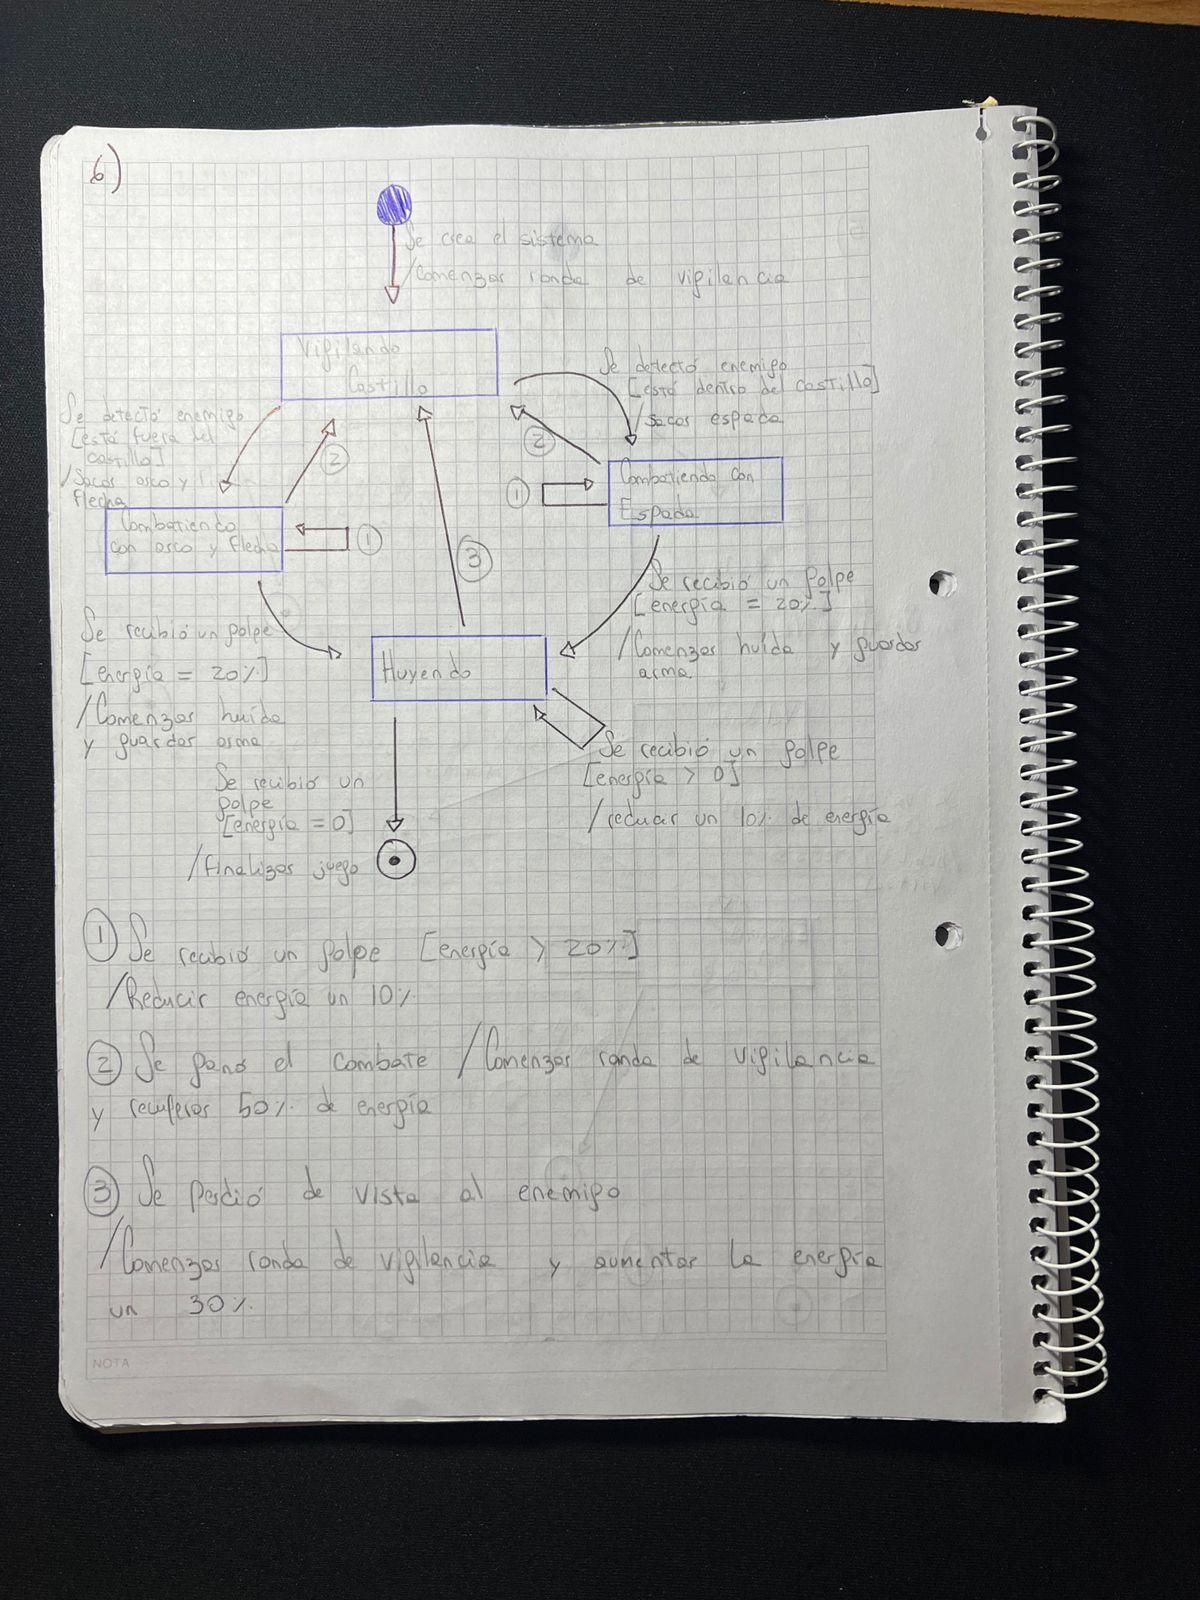 6)
Se crea el sistema
/Comenzar ronda de vigilancia
Vigilando
Castillo
Se detectó enemigo
[está dentro del castillo]
/sacar espada
Se detectó enemigo
[está fuera del
castillo]
/Sacar arco y
flecha
2
2
Combatiendo con
Espada
1
Combatiendo
con arco y flecha
1
3
Se recibió un golpe
[energía = 20%]
/Comenzar huída y guardar
arma
Se recibió un golpe
[energía = 20%]
/Comenzar huida
y guardar arma
Huyendo
Se recibió un golpe
[energía > 0]
/reducir un 10% de energía
Se recibió un
golpe
[energía = 0]
/finalizar juego
1 Se recibió un golpe [energía > 20%]
/Reducir energía un 10%
2 Se ganó el combate /Comenzar ronda de vigilancia
y recuperar 50% de energía
3 Se perdió de vista al enemigo
/Comenzar ronda de vigilancia y aumentar la energía
un 30%
NOTA